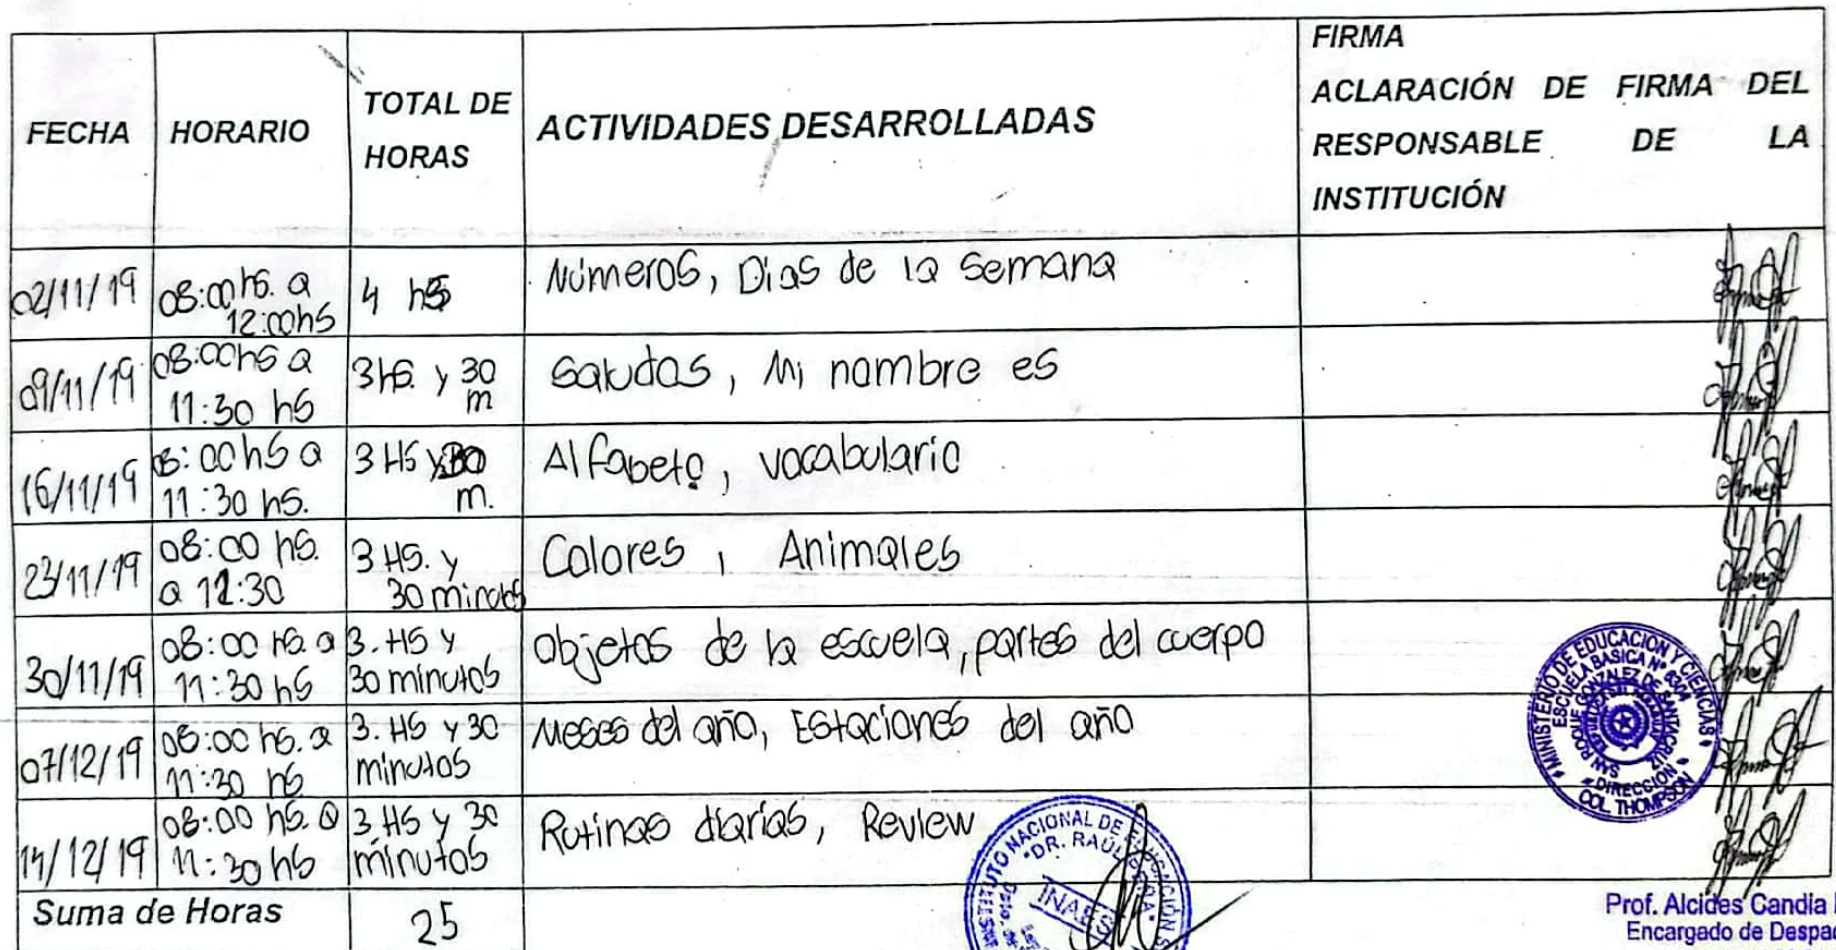 FECHA
HORARIO
TOTAL DE
HORAS
ACTIVIDADES DESARROLLADAS
FIRMA
ACLARACIÓN DE FIRMA DEL
RESPONSABLE DE LA
INSTITUCIÓN
02/11/19
08:00 hs. a
12:00hs
4 hs
Números, Dias de la Semana
09/11/19
08:00hs a
11:30 hs
3hs. y 30
m
Saludos, Mi nombre es
16/11/19
08:00hs a
11:30 hs.
3 HS y 30
m.
Alfabeto, vocabulario
23/11/19
08:00 hs.
a 11:30
3 HS. y
30 minutos
Colores, Animales
30/11/19
08:00 hs. a
11:30 hs
3. HS y
30 minutos
objetos de la escuela, partes del cuerpo
07/12/19
08:00 hs. a
11:30 hs
3. HS y 30
minutos
Meses del año, Estaciones del año
14/12/19
08:00 hs. a
11:30 hs
3 HS y 30
minutos
Rutinas diarias, Review
Suma de Horas
25
MINISTERIO DE EDUCACION Y CIENCIAS
ESCUELA BASICA Nº
SAN ROQUE GONZALEZ DE SANTACRUZ
DIRECCION
COL. THOMPSON
INSTITUTO NACIONAL DE EDUCACIÓN
"DR. RAÚL PEÑA"
INAES
Prof. Alcides Candia
Encargado de Despa